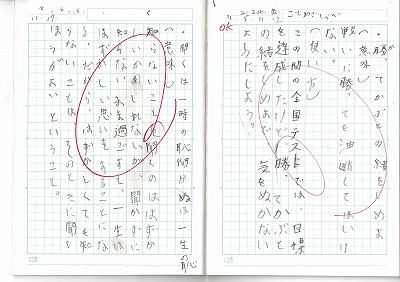 ことわざしらべ
・勝ってかぶとの緒をしめよ
〈意味〉
戦いに勝っても油断してはいけ
ない。
〈使い方〉
この間の全国テストでは、目標
を達成したけど、勝ってかぶと
の緒をしめよで、気をぬかない
ようにしよう。
OK
・聞くは一時の恥聞かぬは一生の恥
〈意味〉
知らないことを聞くのははずか
しいかもしれないが、聞かずに
知らないまま過ごすと、一生は
ずかしい思いをすることにな
る。だから、はずかしくても知
らないことは、そのときに聞く
ほうがよいということ。